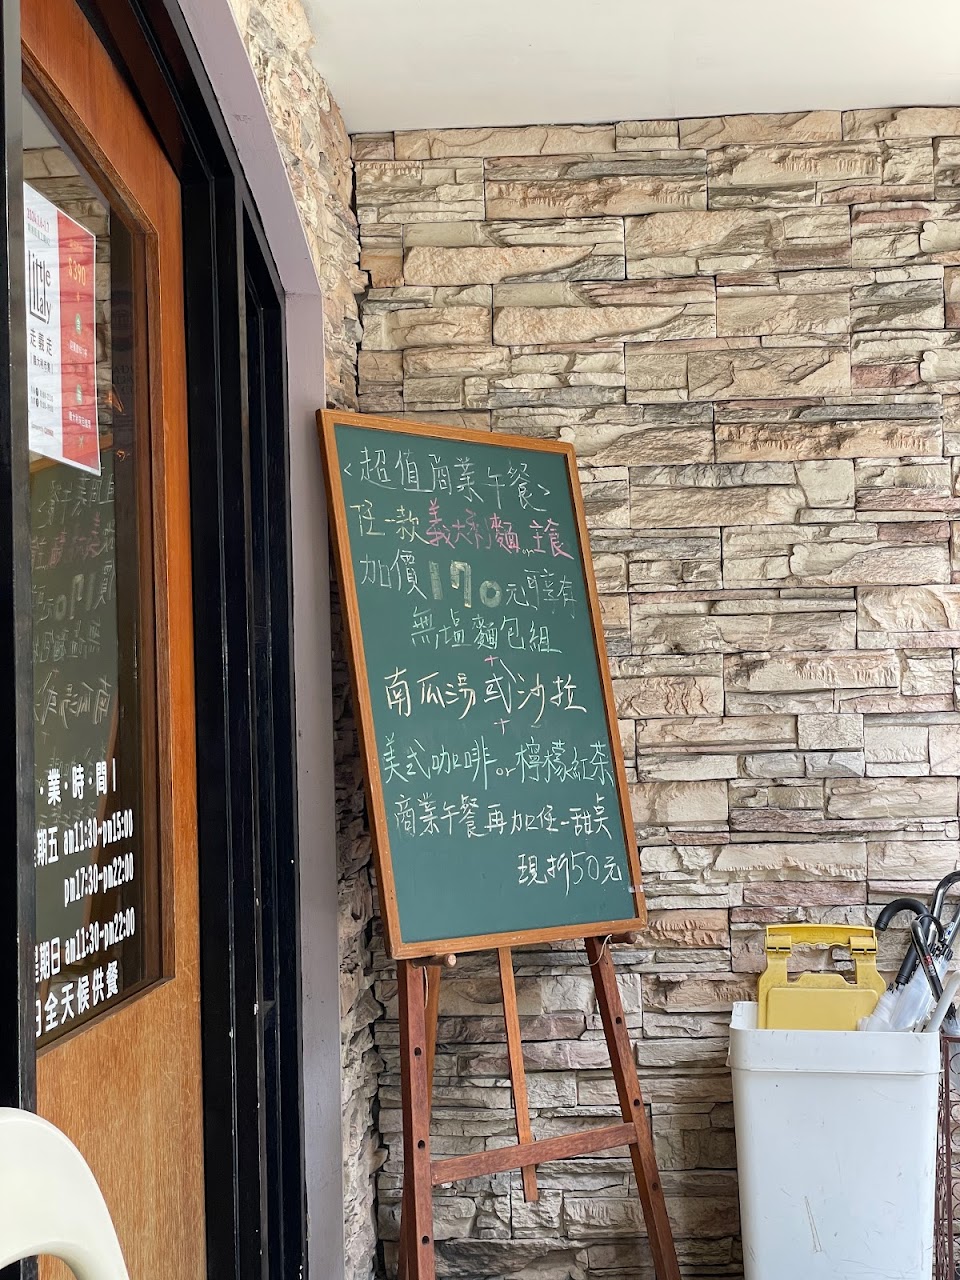 <超值商業午餐>
任一款義大利麵...主食
加價170元享有
無塩麵包組
+
南瓜湯或沙拉
+
美式咖啡or檸檬紅茶
商業午餐再加任一甜桌
現折50元
Little
Italy
走義走
$390
業·時·間|
期五 am11:30~pm15:00
pm17:30~pm22:00
星期日 am11:30~pm22:00
日全天候供餐